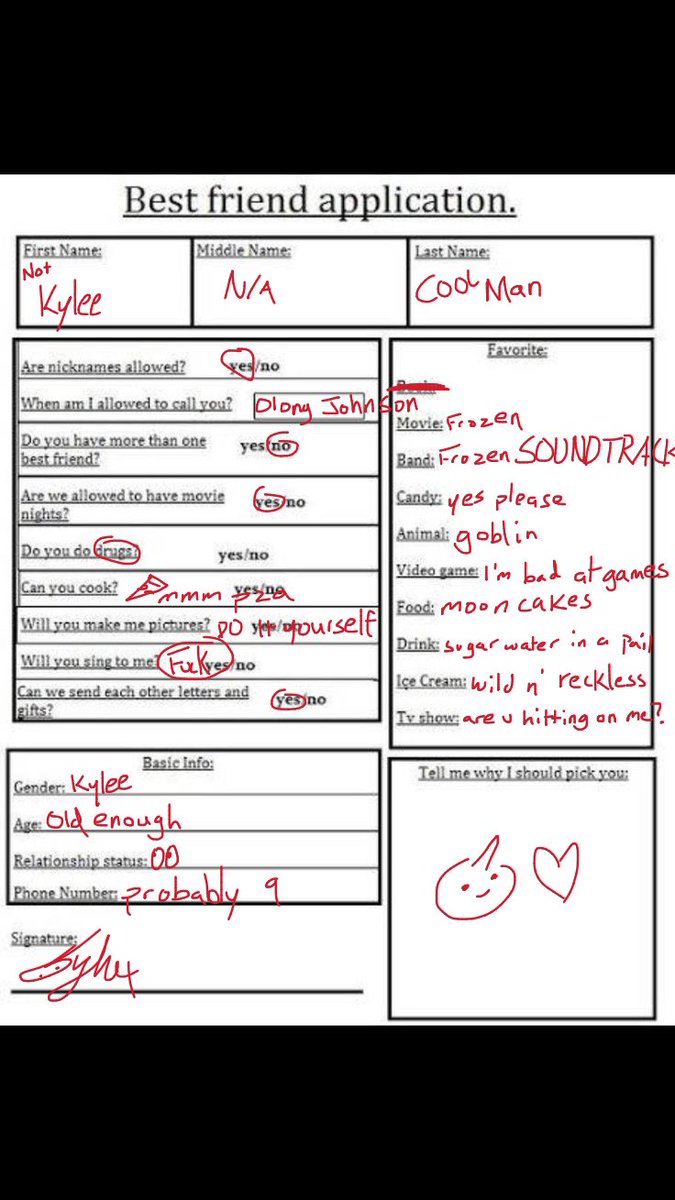 Best friend application.
First Name:
Not
Kylee
Middle Name:
N/A
Last Name:
Cool Man
Are nicknames allowed? yes/no
When am I allowed to call you? Olong Johnson
Do you have more than one
best friend? yes/no
Are we allowed to have movie
nights? yes/no
Do you do drugs? yes/no
Can you cook? mmm pza yes/no
Will you make me pictures? DO it yourself yes/no
Will you sing to me? Fuck yes/no
Can we send each other letters and
gifts? yes/no
Favorite:
Movie: Frozen
Band: Frozen SOUNDTRACK
Candy: yes please
Animal: goblin
Video game: I'm bad at games
Food: moon cakes
Drink: sugar water in a pail
Ice Cream: wild n' reckless
Tv show: are u hitting on me?
Basic Info:
Gender: Kylee
Age: Old enough
Relationship status: 00
Phone Number: probably 9
Signature:
Tell me why I should pick you: